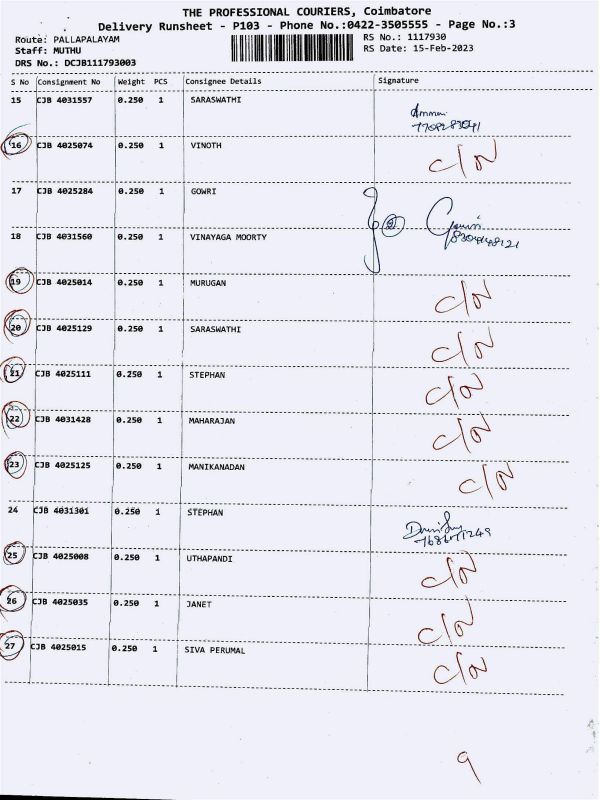 THE PROFESSIONAL COURIERS, Coimbatore
Delivery Runsheet - P103 - Phone No.:0422-3505555 - Page No.:3
Route: PALLAPALAYAM RS No.: 1117930
Staff: MUTHU RS Date: 15-Feb-2023
DRS No.: DCJB111793003
S No Consignment No Weight PCS Consignee Details Signature
15 CJB 4031557 0.250 1 SARASWATHI
16 CJB 4025074 0.250 1 VINOTH C/N
17 CJB 4025284 0.250 1 GOWRI
18 CJB 4031560 0.250 1 VINAYAGA MOORTY
19 CJB 4025014 0.250 1 MURUGAN C/N
20 CJB 4025129 0.250 1 SARASWATHI C/N
21 CJB 4025111 0.250 1 STEPHAN C/N
22 CJB 4031428 0.250 1 MAHARAJAN C/N
23 CJB 4025125 0.250 1 MANIKANADAN C/N
24 CJB 4031301 0.250 1 STEPHAN
25 CJB 4025008 0.250 1 UTHAPANDI C/N
26 CJB 4025035 0.250 1 JANET C/N
27 CJB 4025015 0.250 1 SIVA PERUMAL C/N
9